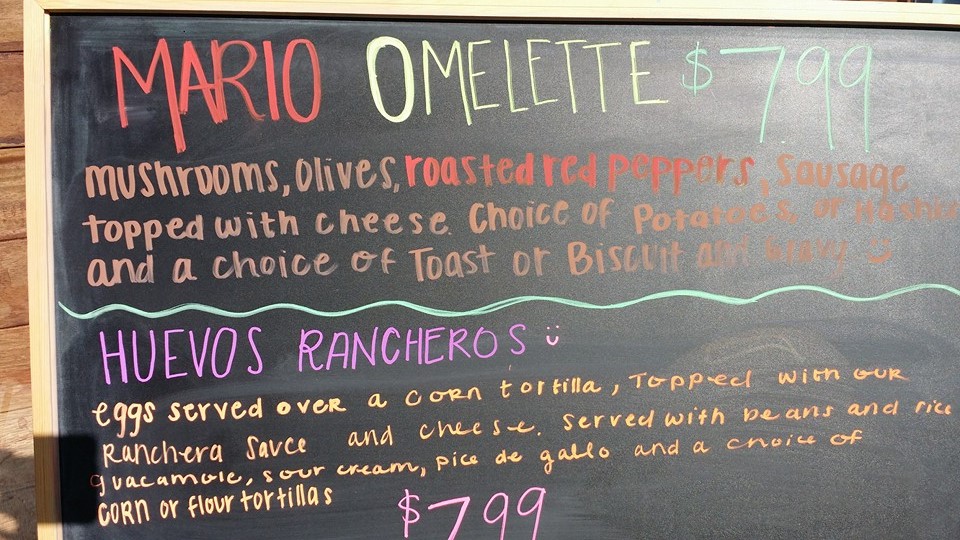 MARIO OMELETTE $799
mushrooms, Olives, roasted red peppers, Sausage
topped with cheese. Choice of Potatoes, or
and a choice of Toast or Biscuit and Gravy
HUEVOS RANCHEROS
eggs served over a corn tortilla, Topped with our
Ranchera Sauce and cheese. served with beans and rice
guacamole, sour cream, pico de gallo and a choice of
corn or flour tortillas
$799